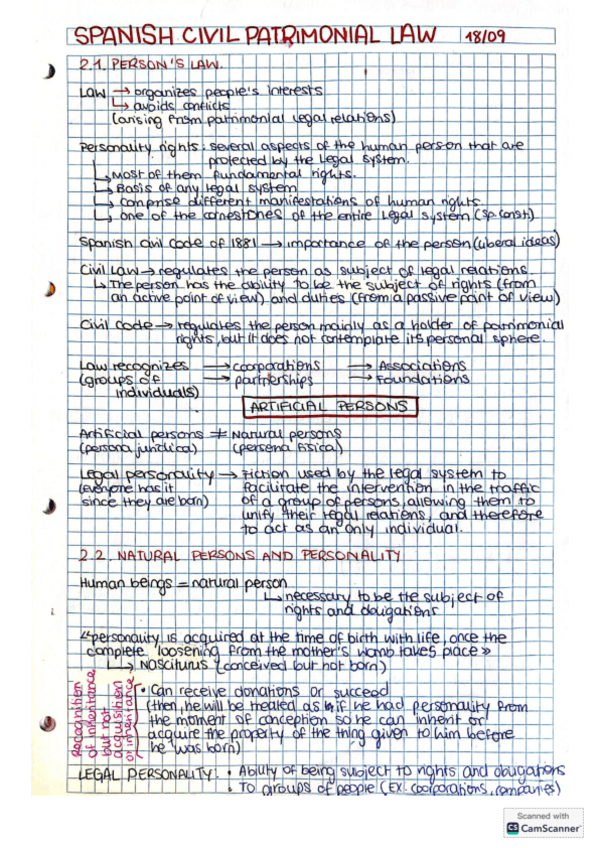 SPANISH CIVIL PATRIMONIAL LAW 18/09
2.1. PERSON'S LAW.
Law → organizes people's interests
↳ avoids conflicts
(arising from patrimonial legal relations)
Personality rights: several aspects of the human person that are
protected by the Legal system.
↳ Most of them fundamental rights.
↳ Basis of any legal system
↳ comprise different manifestations of human rights
↳ one of the cornestones of the entire Legal system (Sp. const)
Spanish Civil Code of 1881 → importance of the person (liberal ideas)
Civil Law → regulates the person as subject of legal relations.
↳ The person has the ability to be the subject of rights (from
an active point of view) and duties (from a passive point of view)
Civil code → regulates the person mainly as a holder of patrimonial
rights, but it does not contemplate its personal sphere.
Law recognizes → corporations → Associations
(groups of → partnerships → Foundations
individuals)
ARTIFICIAL PERSONS
Artificial persons ≠ Natural persons
(persona jurídica) (persona física)
Legal personality → Fiction used by the legal system to
(everyone has it facilitate the intervention in the traffic
since they are born) of a group of persons, allowing them to
unify their legal relations, and therefore
to act as an only individual.
2.2. NATURAL PERSONS AND PERSONALITY
Human beings = natural person
↳ necessary to be the subject of
rights and obligations
"personality is acquired at the time of birth with life, once the
complete loosening from the mother's womb takes place »
↳ Nasciturus (conceived but not born)
Recognition
of inheritance
but not
acquisition
of inheritance
• Can receive donations or succeed
(then, he will be treated as if he had personality from
the moment of conception so he can inherit or
acquire the property of the thing given to him before
he was born)
LEGAL PERSONALITY: • Ability of being subject to rights and obligations
• To groups of people (EX: coorporations, companies)
Scanned with
CS CamScanner